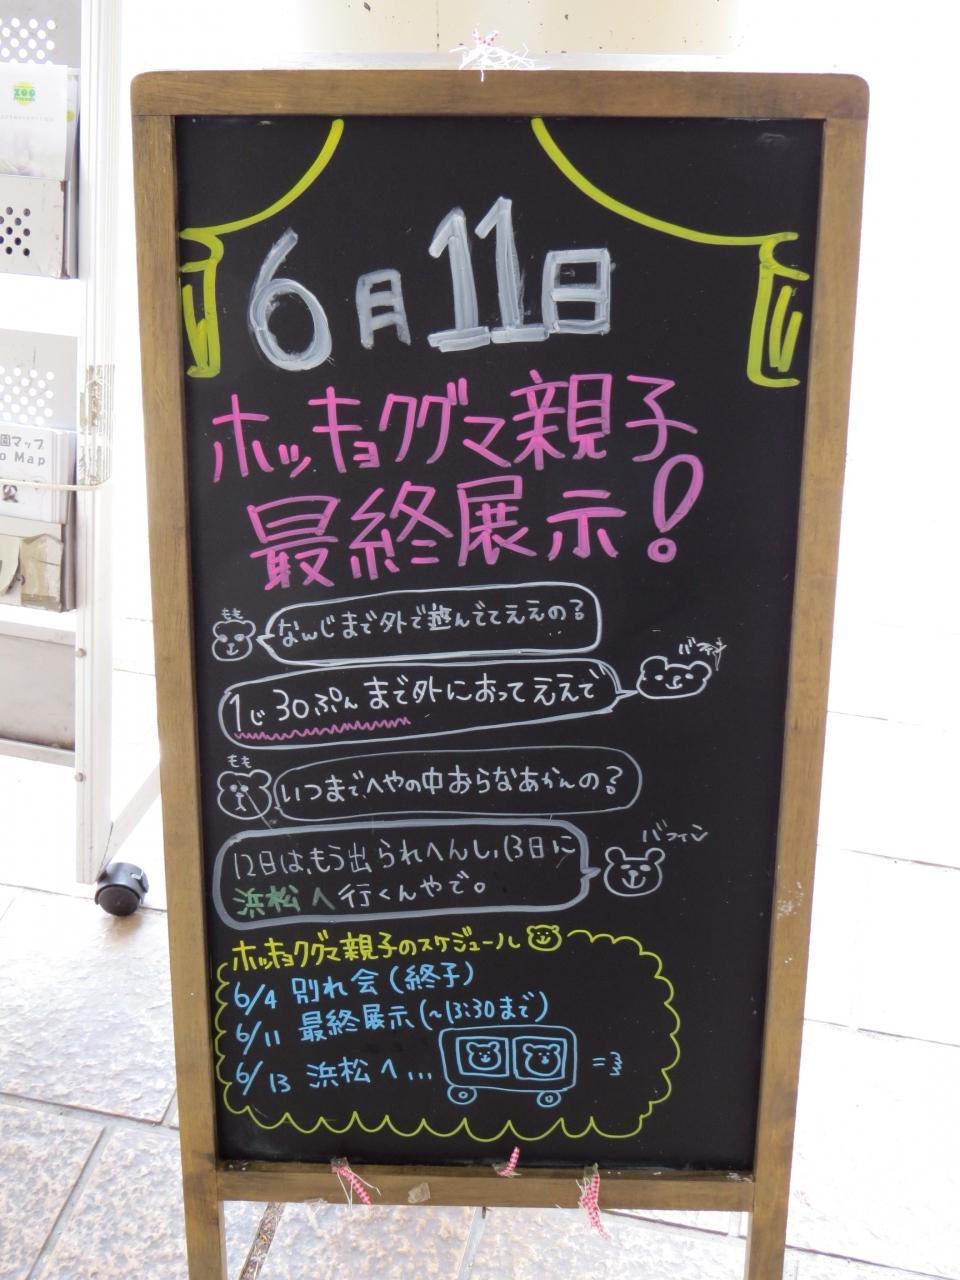 ZOO
園マップ
o Map
6月11日
ホッキョクグマ親子
最終展示!
もも
なんじまで外で遊んでてええの?
バフィン
1じ30ぷんまで外におってええで
もも
いつまで、へやの中おらなあかんの?
バフィン
12日は、もう出られへんし、13日に
浜松へ行くんやで。
ホッキョクグマ親子のスケジュール
6/4 別れ会(終了)
6/11 最終展示(~13:30まで)
6/13 浜松へ...